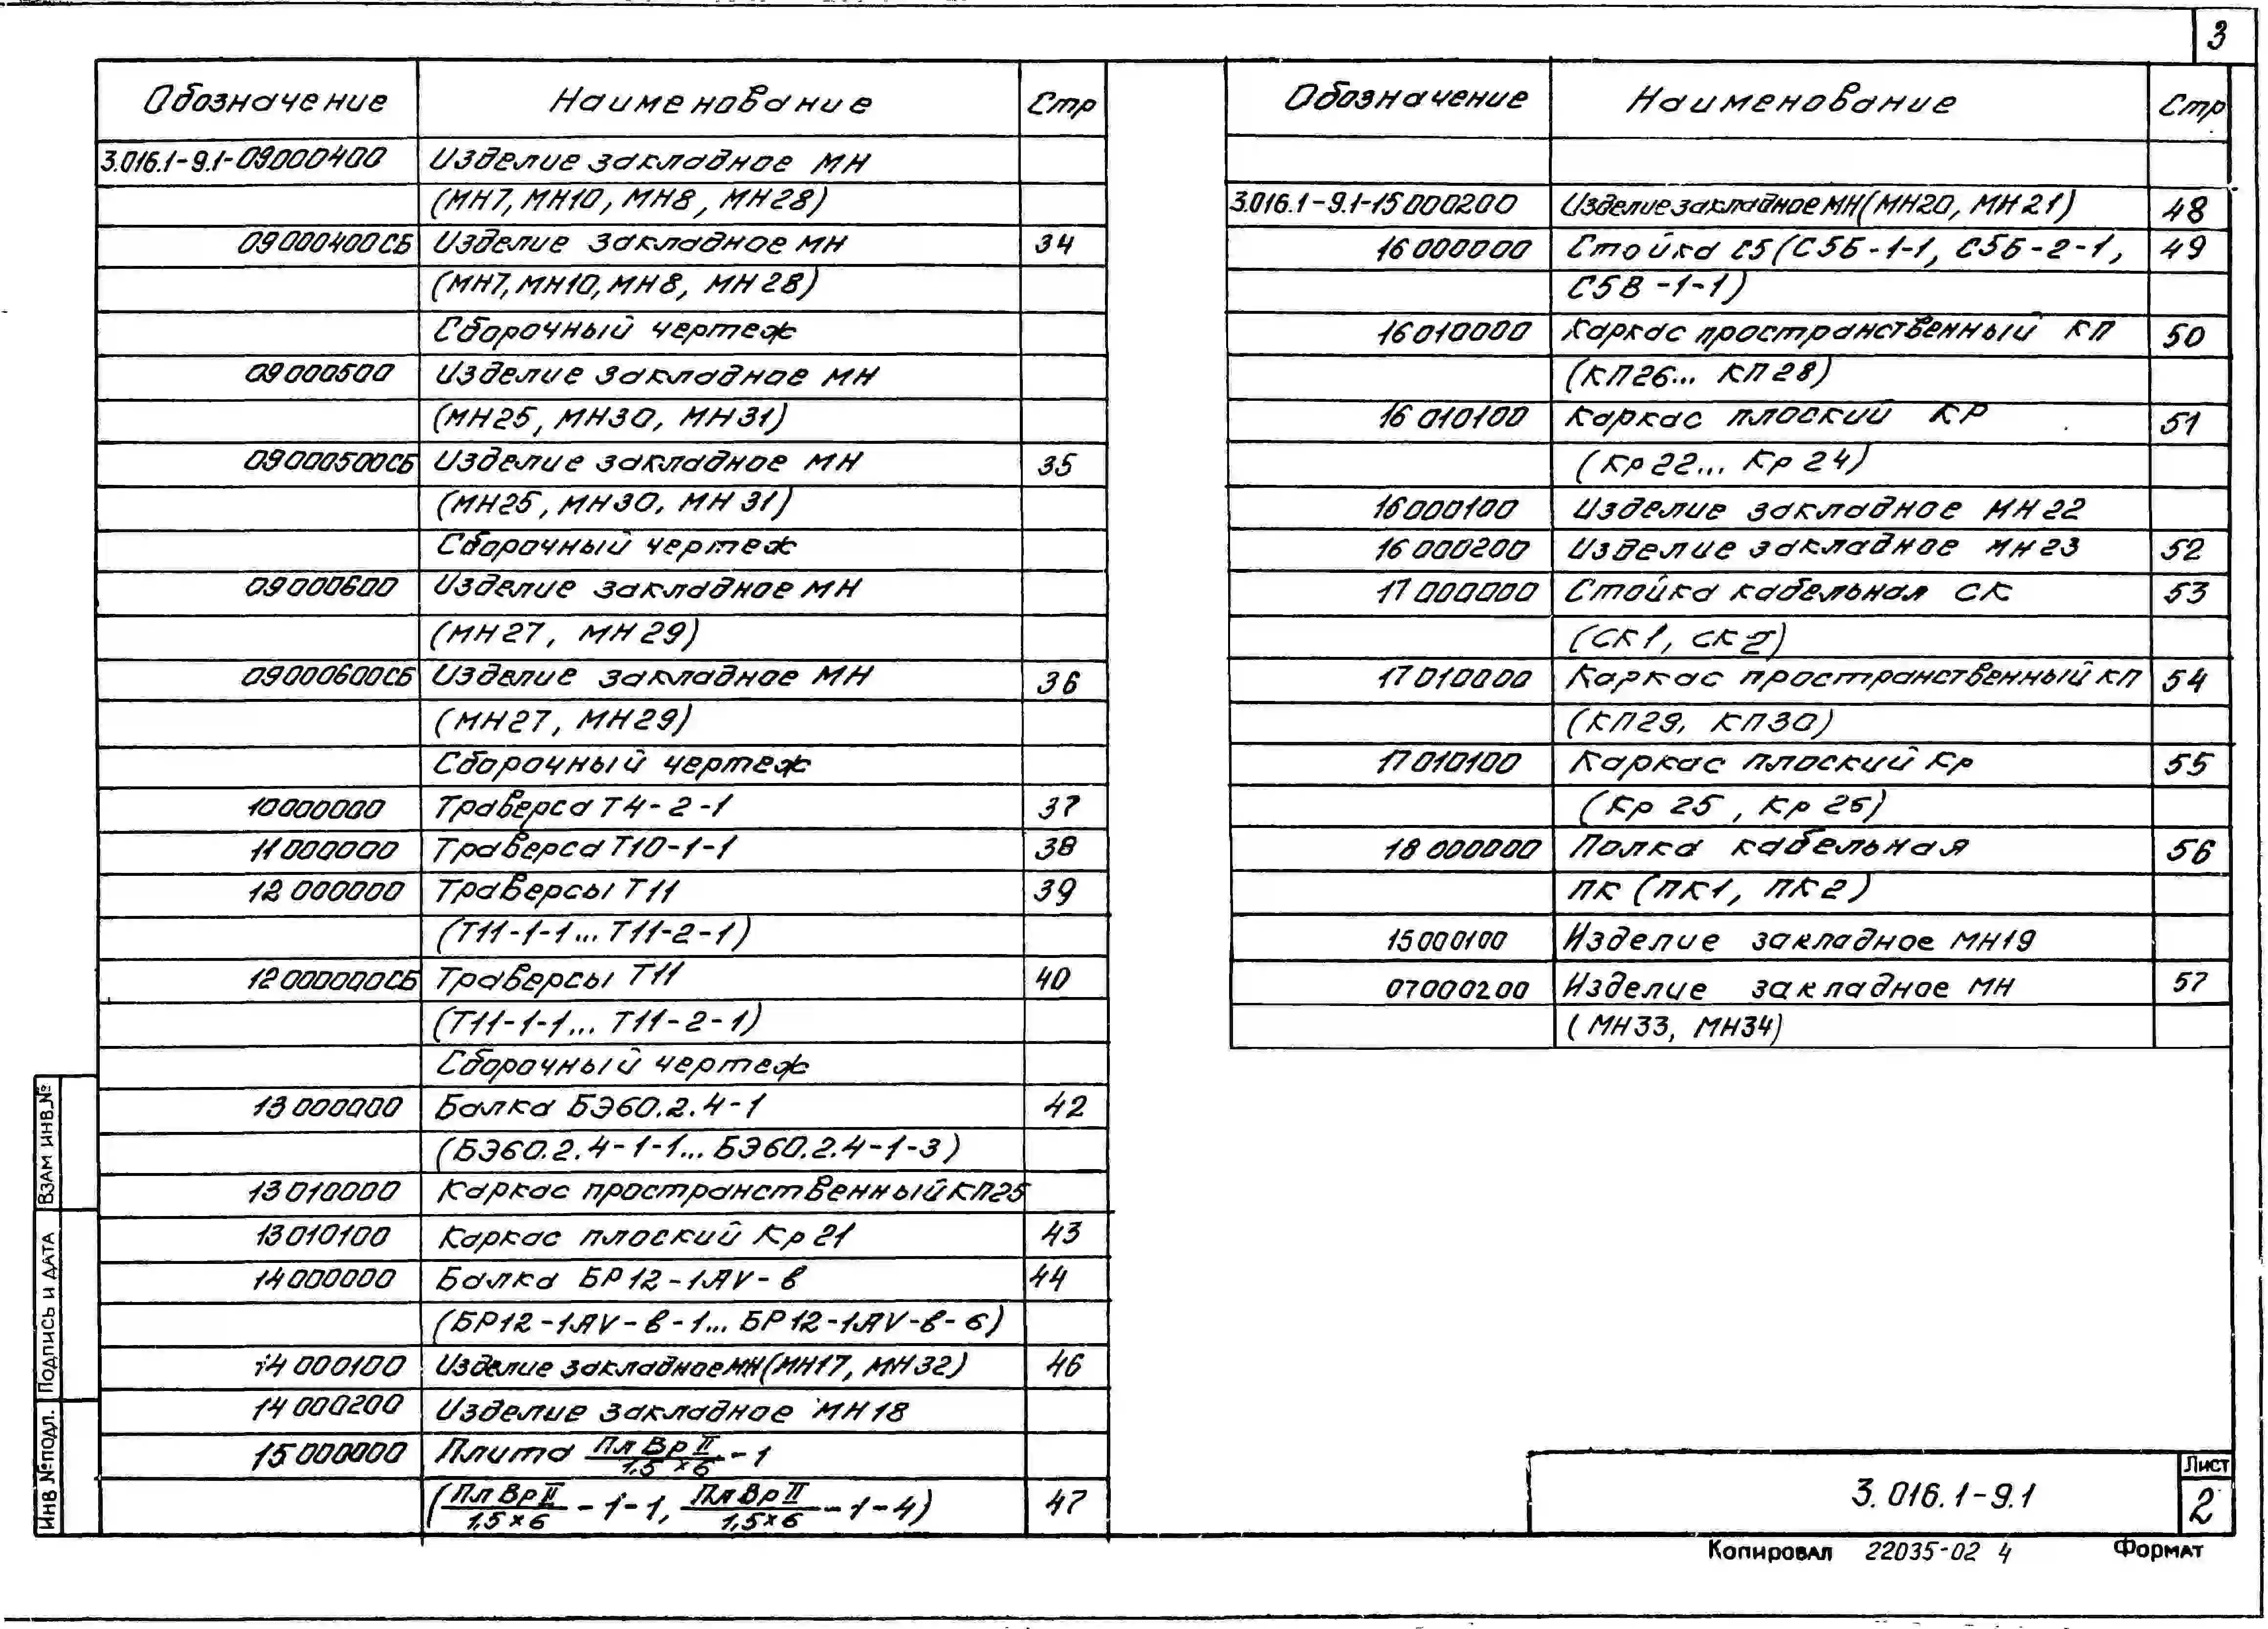 3
Обозначение Наименование Стр
3.016.1-9.1-09000400 Изделие закладное МН
(МН7, МН10, МН8, МН28)
09000400СБ Изделие закладное МН 34
(МН7, МН10, МН8, МН28)
Сборочный чертеж
09000500 Изделие закладное МН
(МН25, МН30, МН31)
09000500СБ Изделие закладное МН 35
(МН25, МН30, МН31)
Сборочный чертеж
09000600 Изделие закладное МН
(МН27, МН29)
09000600СБ Изделие закладное МН 36
(МН27, МН29)
Сборочный чертеж
10000000 Траверса Т4-2-1 37
11000000 Траверса Т10-1-1 38
12000000 Траверсы Т11 39
(Т11-1-1... Т11-2-1)
12000000СБ Траверсы Т11 40
(Т11-1-1... Т11-2-1)
Сборочный чертеж
13000000 Балка БЭ60.2.4-1 42
(БЭ60.2.4-1-1... БЭ60.2.4-1-3)
13010000 Каркас пространственный КП25
13010100 Каркас плоский Кр21 43
14000000 Балка БР12-1АV-в 44
(БР12-1АV-в-1... БР12-1АV-в-6)
14000100 Изделие закладное МН(МН17, МН32) 46
14000200 Изделие закладное МН18
15000000 Плита Пл Вр II / 1,5×6 - 1
(Пл Вр II / 1,5×6 - 1-1, Пл Вр II / 1,5×6 - 1-4) 47
Обозначение Наименование Стр
3.016.1-9.1-15000200 Изделие закладное МН(МН20, МН21) 48
16000000 Стойка С5 (С5Б-1-1, С5Б-2-1, 49
С5В-1-1)
16010000 Каркас пространственный КП 50
(КП26... КП28)
16010100 Каркас плоский КР 51
(Кр22... Кр24)
16000100 Изделие закладное МН22
16000200 Изделие закладное МН23 52
17000000 Стойка кабельная СК 53
(СК1, СК2)
17010000 Каркас пространственный КП 54
(КП29, КП30)
17010100 Каркас плоский Кр 55
(Кр25, Кр26)
18000000 Полка кабельная 56
ПК (ПК1, ПК2)
15000100 Изделие закладное МН19
07000200 Изделие закладное МН 57
(МН33, МН34)
Взам инв.№
Подпись и дата
Инв №подл.
3.016.1-9.1
Лист
2
Копировал 22035-02 4 Формат